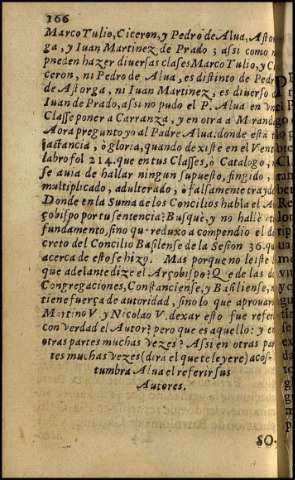 166
Marco Tulio, Ciceron, y Pedro de Alua, Astor
ga, y Iuan Martinez de Prado; assi como n
pueden hazer diuersas clases Marco Tulio, y Ci
ceron, ni Pedro de Alua, es distinto de Pedr
de Astorga, ni Iuan Martinez, es diuerso d
Iuan de Prado, assi no pudo el P. Alua en vn
Classe poner a Carranza, y en otra a Mirand
Aora pregunto yo al Padre Alua: donde està ta
jactancia, ò gloria, quando dixiste en el Vent
labro fol 214. que en tus Classes, ò Catalogo, n
se auia de hallar ningun supuesto, fingido,
multiplicado, adulterado, ò falsamente traydo
Donde en la Suma de los Concilios habla el Ar
çobispo por tu sentencia? Busquè, y no hallè
fundamento, sino que reduxo a compendio el de
creto del Concilio Basilense de la Sesion 36. qu
acerca de esto se hizo. Mas porque no leiste l
que adelante dize el Arçobispo: Q e de las d
Congregaciones, Constanciense, y Basiliense, n
tiene fuerça de autoridad, sino lo que aprouar
Martino V. y Nicolao V. dexar esto fue refer
con verdad el Autor? pero que es aquello: y en
otras partes muchas vezes? Assi en otras par
tes muchas vezes (dira el que te leyere) acos-
tumbra Alua el referir sus
Autores.
SO-